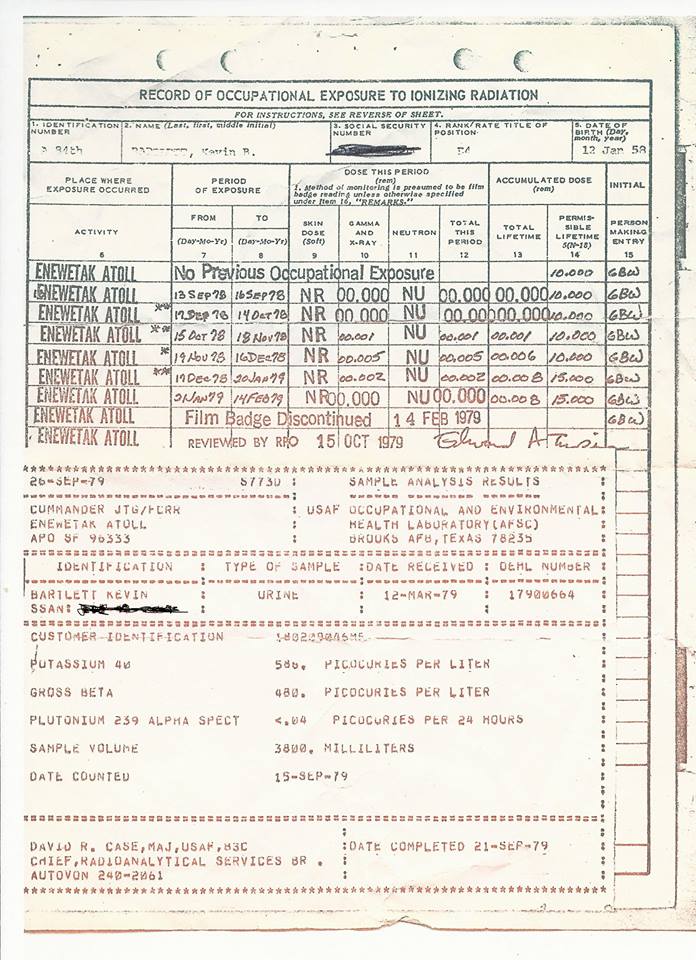 RECORD OF OCCUPATIONAL EXPOSURE TO IONIZING RADIATION
FOR INSTRUCTIONS, SEE REVERSE OF SHEET.
1. IDENTIFICATION NUMBER 2. NAME (Last, first, middle initial) 3. SOCIAL SECURITY NUMBER 4. RANK/RATE TITLE OF POSITION 5. DATE OF BIRTH (Day, month, year)
84th Kevin R. E4 12 Jan 58
PLACE WHERE EXPOSURE OCCURRED PERIOD OF EXPOSURE DOSE THIS PERIOD (rem) 1. Method of monitoring is presumed to be film badge reading unless otherwise specified under Item 16, "REMARKS." ACCUMULATED DOSE (rem) INITIAL
ACTIVITY FROM (Day-Mo-Yr) TO (Day-Mo-Yr) SKIN DOSE (Soft) GAMMA AND X-RAY NEUTRON TOTAL THIS PERIOD TOTAL LIFETIME PERMISSIBLE LIFETIME 5(N-18) PERSON MAKING ENTRY
6 7 8 9 10 11 12 13 14 15
ENEWETAK ATOLL No Previous Occupational Exposure 10.000 GBW
ENEWETAK ATOLL 13 SEP 78 16 SEP 78 NR 00.000 NU 00.000 00.000 10.000 GBW
ENEWETAK ATOLL ** 17 SEP 78 14 OCT 78 NR 00.000 NU 00.000 00.000 10.000 GBW
ENEWETAK ATOLL ** 15 OCT 78 18 NOV 78 NR 00.001 NU 00.001 00.001 10.000 GBW
ENEWETAK ATOLL * 19 NOV 78 16 DEC 78 NR 00.005 NU 00.005 00.006 10.000 GBW
ENEWETAK ATOLL *** 17 DEC 78 20 JAN 79 NR 00.002 NU 00.002 00.008 15.000 GBW
ENEWETAK ATOLL 21 JAN 79 14 FEB 79 NR 00.000 NU 00.000 00.008 15.000 GBW
ENEWETAK ATOLL Film Badge Discontinued 14 FEB 1979 GBW
ENEWETAK ATOLL REVIEWED BY RPO 15 OCT 1979 Edward A
26-SEP-79 S773D : SAMPLE ANALYSIS RESULTS
COMMANDER JTG/FCRR : USAF OCCUPATIONAL AND ENVIRONMENTAL
ENEWETAK ATOLL : HEALTH LABORATORY(AFSC)
APO SF 96333 : BROOKS AFB,TEXAS 78235
IDENTIFICATION : TYPE OF SAMPLE :DATE RECEIVED : OEHL NUMBER
BARTLETT KEVIN : URINE : 12-MAR-79 : 17900664
SSAN:
CUSTOMER IDENTIFICATION
POTASSIUM 40 586. PICOCURIES PER LITER
GROSS BETA 480. PICOCURIES PER LITER
PLUTONIUM 239 ALPHA SPECT <.04 PICOCURIES PER 24 HOURS
SAMPLE VOLUME 3800. MILLILITERS
DATE COUNTED 15-SEP-79
DAVID R. CASE,MAJ,USAF,BSC :DATE COMPLETED 21-SEP-79
CHIEF,RADIOANALYTICAL SERVICES BR .
AUTOVON 240-2061